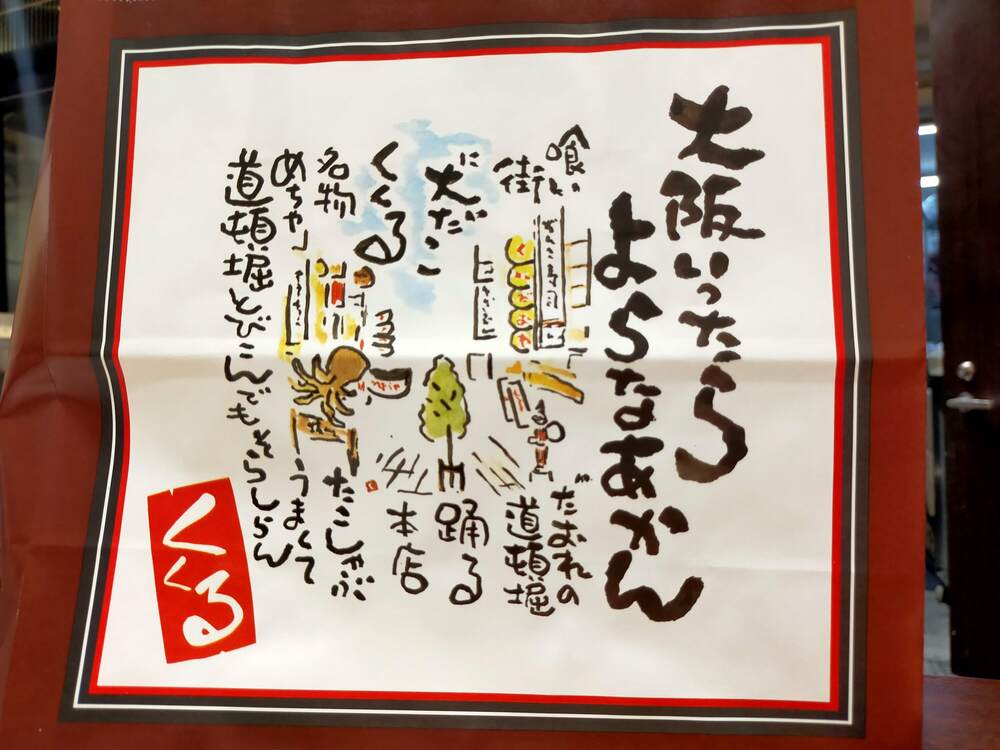 大阪いったら
よらなあかん
喰い
だおれの
街に
道頓堀
に
大だこ
踊る
くくる
本店
名物
たこしゃぶ
めちゃ
うまくて
道頓堀とびこんでもそらしらん
くいだおれ
くくる